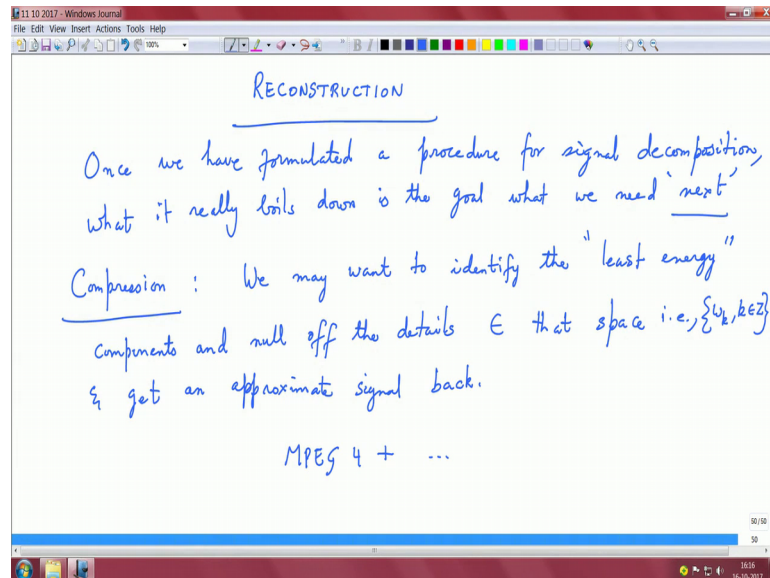 11 10 2017 - Windows Journal
File Edit View Insert Actions Tools Help
100%
B I
RECONSTRUCTION
Once we have formulated a procedure for signal decomposition,
what it really boils down is the goal what we need 'next'
Compression : We may want to identify the "least energy"
components and null off the details ∈ that space i.e., {W_k, k∈Z}
& get an approximate signal back.
MPEG 4 + ...
50/50
50
16:16
16-10-2017